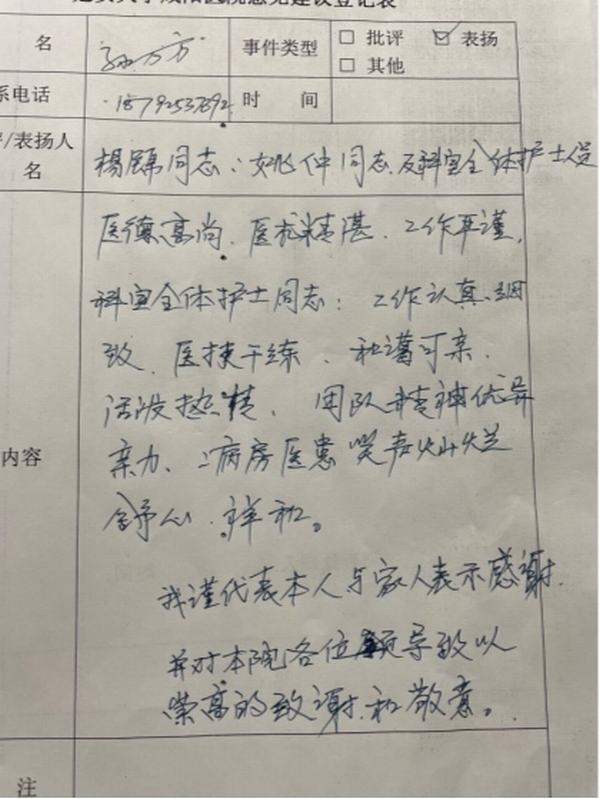 意见建议登记表
名 孙万方 事件类型 □ 批评 ☑ 表扬
□ 其他
系电话 18792537892 时 间
/表扬人
名
杨颢同志、姚仲同志及科室全体护士人员
医德高尚、医术精湛、工作严谨,
科室全体护士同志: 工作认真、细
致、医技干练、和蔼可亲、
活泼热情、团队精神优异
亲力、病房医患笑声灿烂
舒心、祥和。
内容
我谨代表本人与家人表示感谢.
并对本院各位领导致以
崇高的致谢和敬意。
注